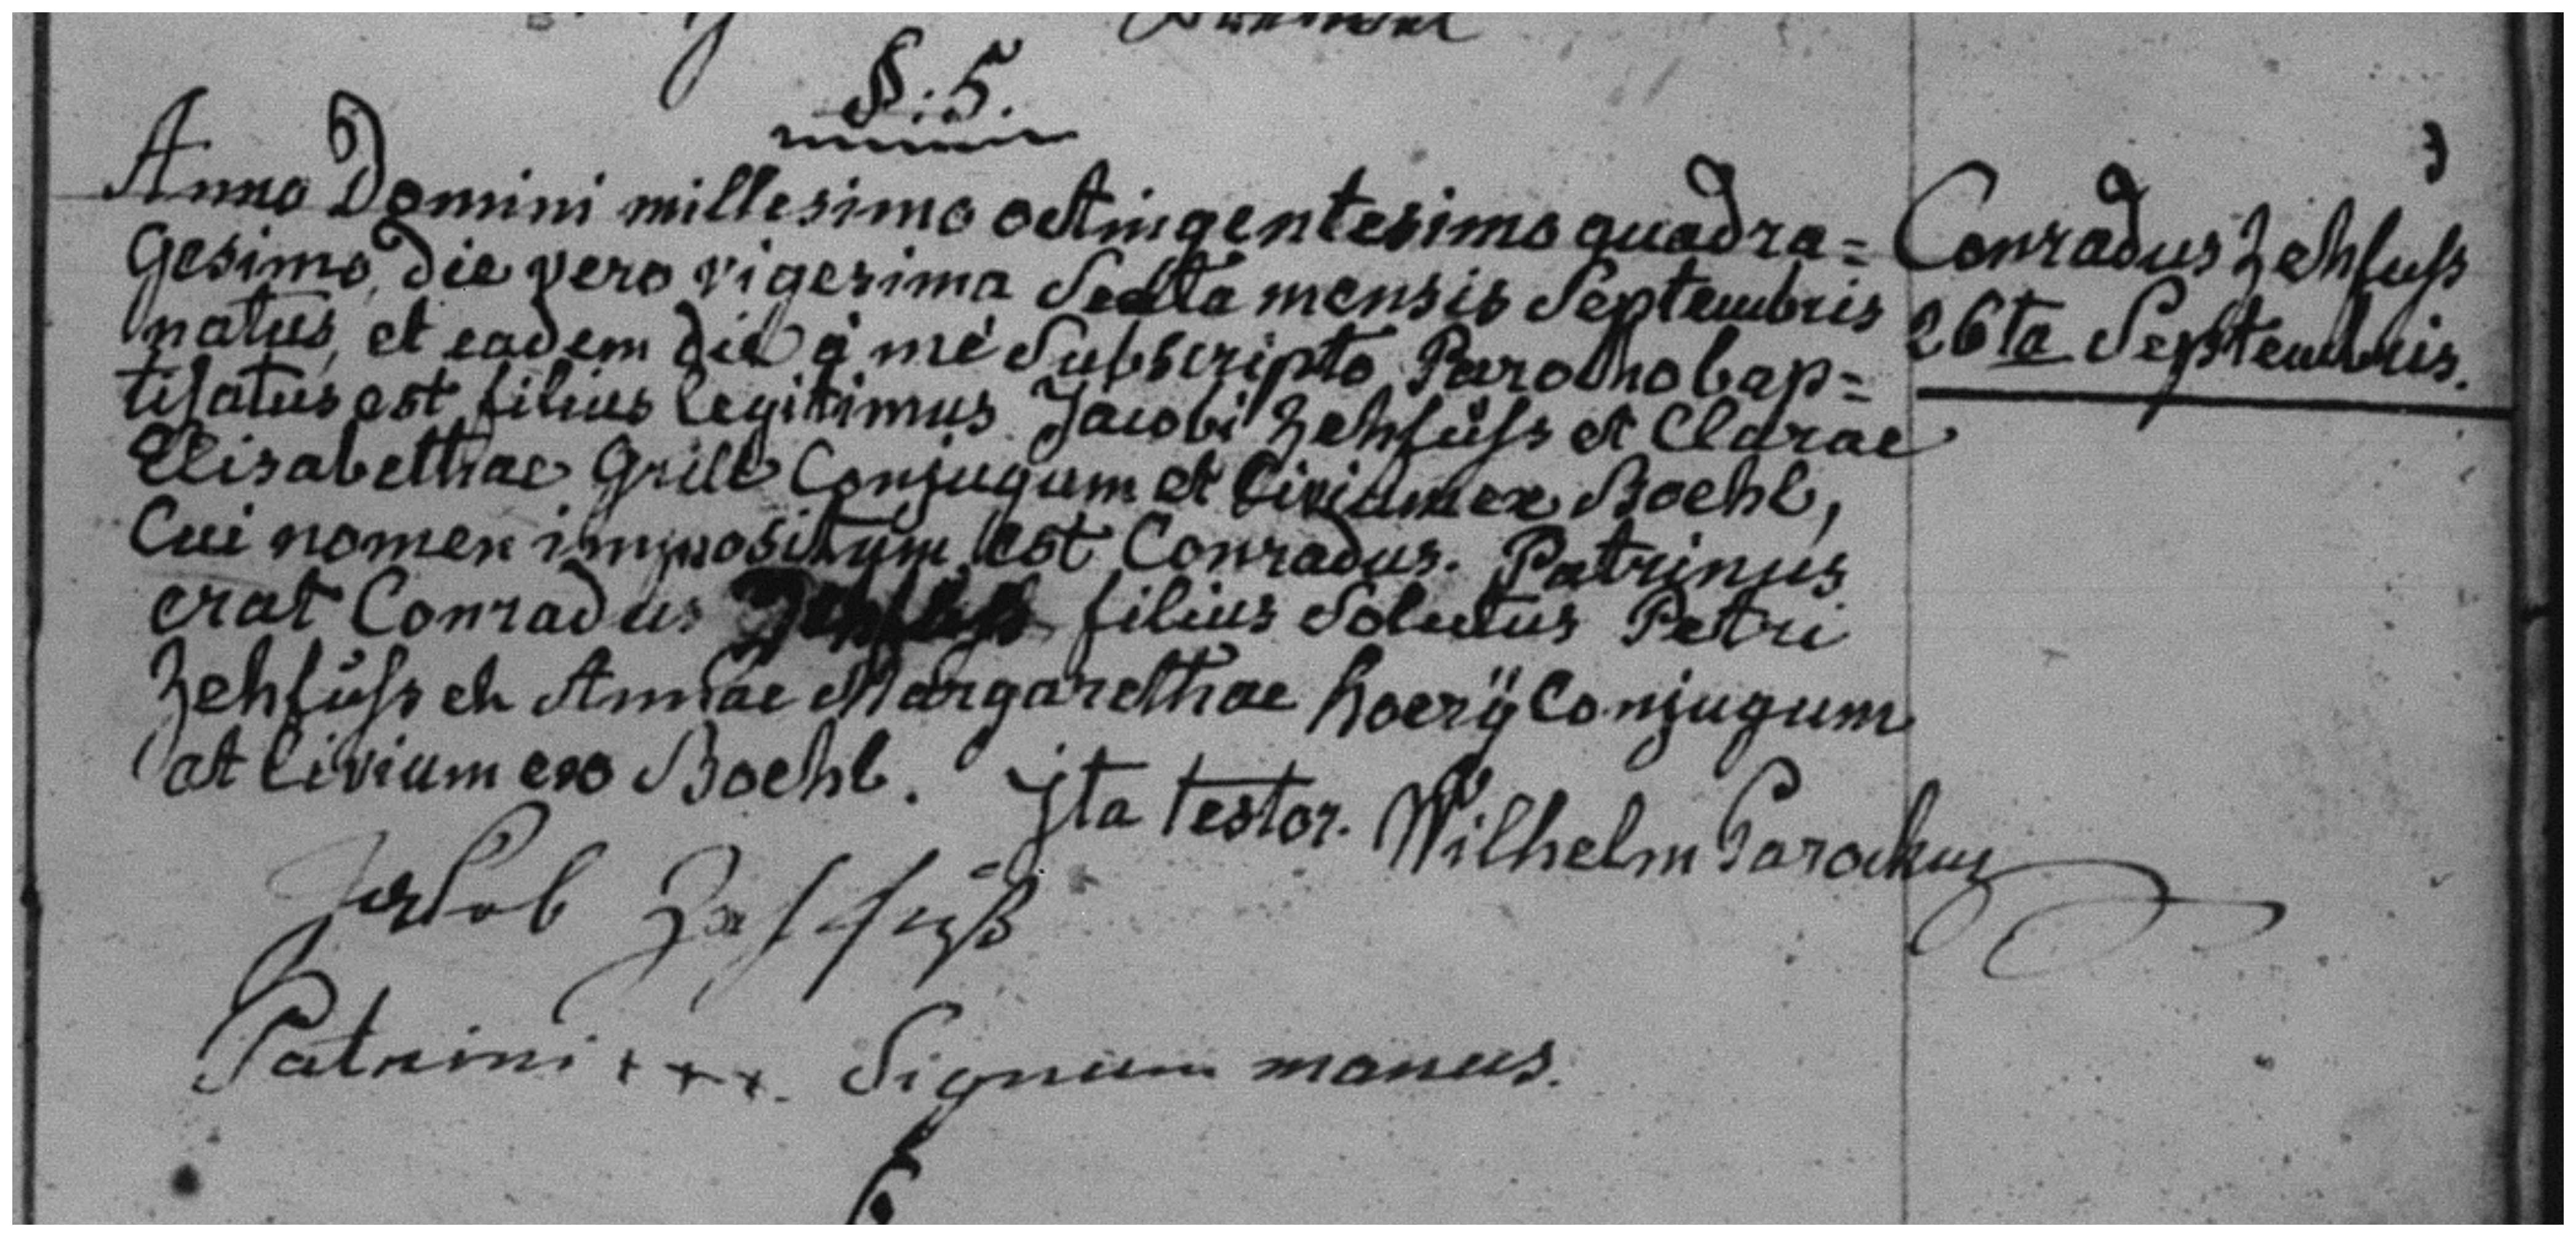 §. 5.
Anno Domini millesimo octingentesimo quadra=
Gesimo, die vero vigesima Sexta mensis Septembris
natus, et eadem die à me Subscripto Parocho bap=
tisatus est filius legitimus Jacobi Zehfuſs et Clarae
Elisabethae Grill Conjugum et Civium ex Boehl,
Cui nomen impositum est Conradus. Patrinus
erat Conradus Zehfuſs filius Solutus Petri
Zehfuſs et Annae Margarethae Conjugum
et Civium ex Boehl. Ita testor. Wilhelm Parochus
Conradus Zehfuſs
26ta Septembris.
Jakob Zehfuß
Patrini +++. Signum manus.